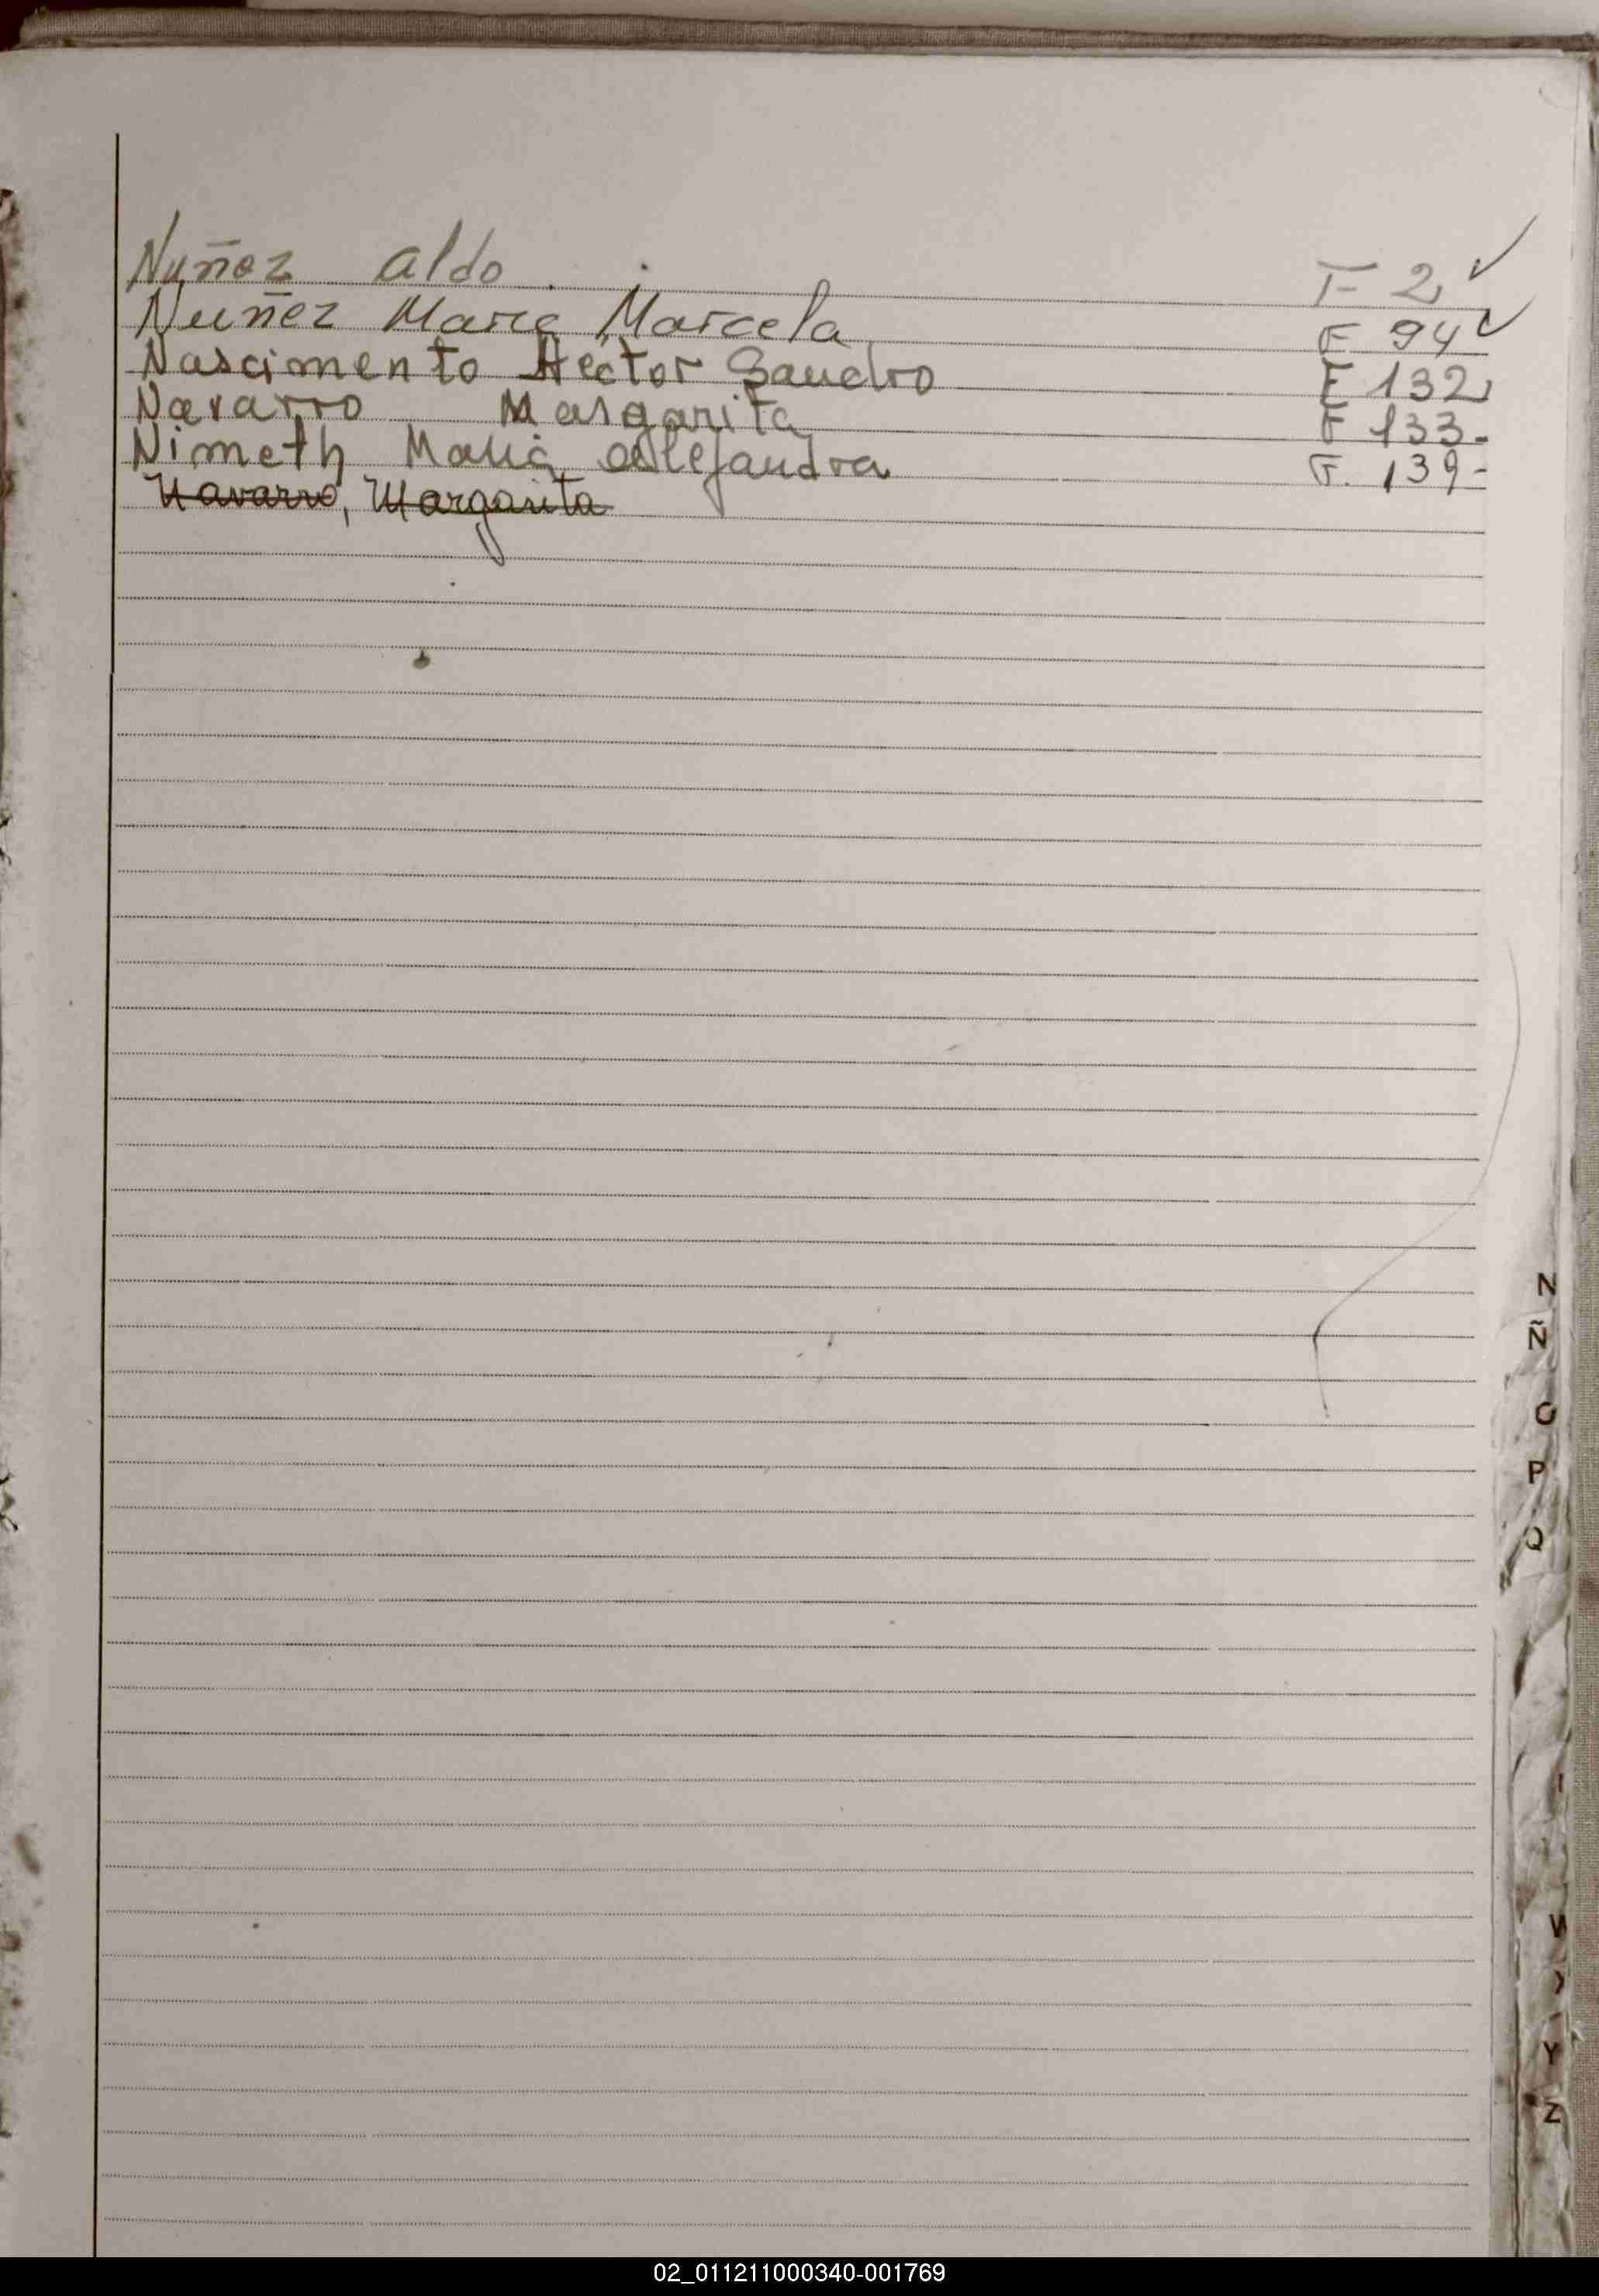 Nuñez Aldo F 2 ✓
Nuñez Maria Marcela F 94 ✓
Nascimento Hector Sandro F 132
Navarro Margarita F 133-
Nimeth Maria Alejandra F. 139-
Navarro, Margarita
N
Ñ
O
P
Q
W
X
Y
Z
02_011211000340-001769